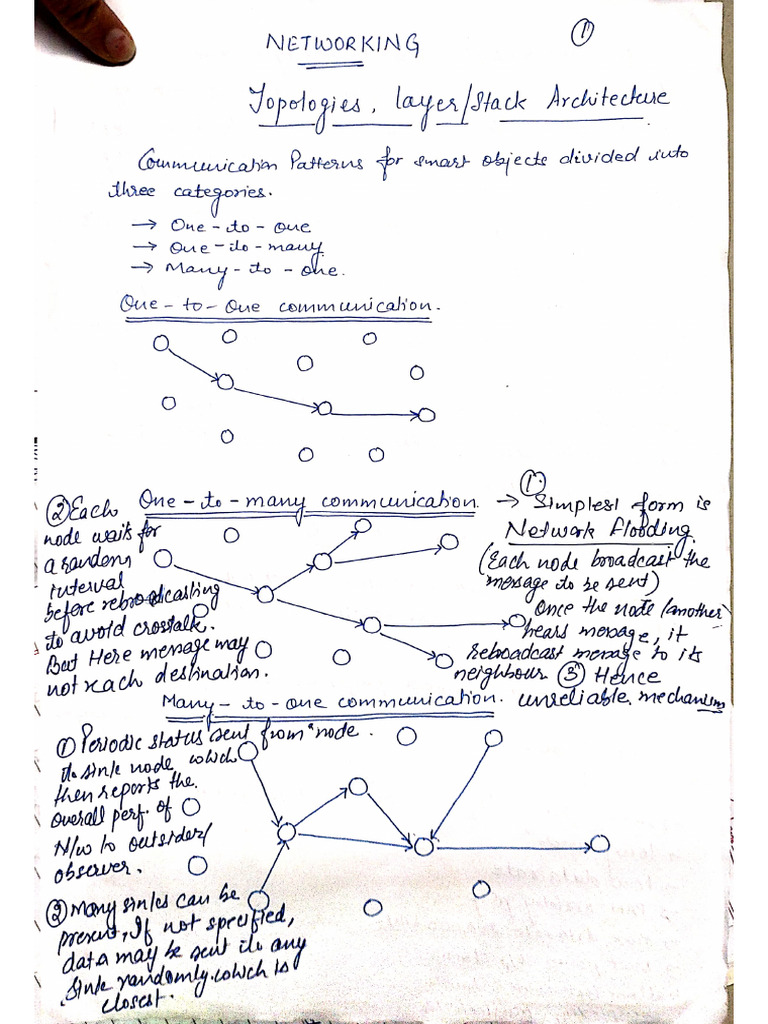 ①
NETWORKING
Topologies, layer/Stack Architecture
Communication Patterns for smart objects divided into
three categories.
→ One-to-one
→ One-to-many
→ Many-to-one.
One-to-One communication.
One-to-many communication.
①. → Simplest form is
Network flooding.
(Each node broadcast the
message to be sent)
Once the node (another)
hears message, it
rebroadcast message to its
neighbour ③ Hence
unreliable mechanism
② Each
node waits for
a random
interval
before rebroadcasting
to avoid crosstalk.
But Here message may
not reach destination.
Many-to-one communication.
① Periodic status sent from node.
to sink node which
then reports the
overall perf. of
N/w to outsider/
observer.
② Many sinks can be
present, If not specified,
data may be sent to any
sink randomly which is
closest.